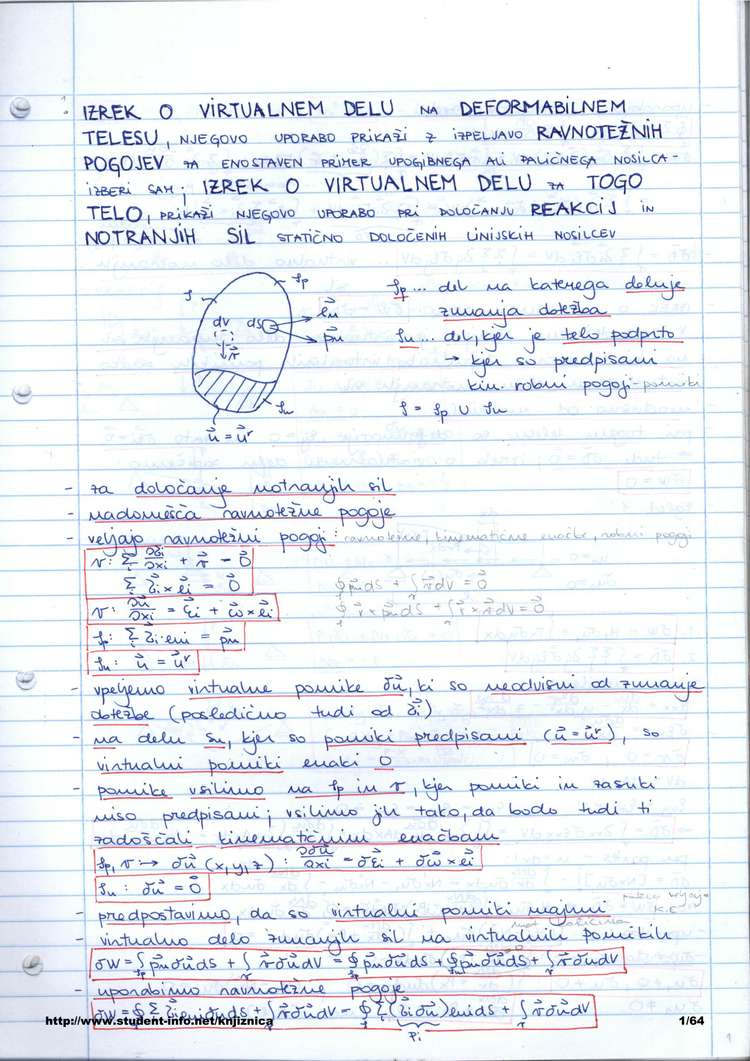 IZREK O VIRTUALNEM DELU NA DEFORMABILNEM
TELESU, NJEGOVO UPORABO PRIKAŽI Z IZPELJAVO RAVNOTEŽNIH
POGOJEV ZA ENOSTAVEN PRIMER UPOGIBNEGA ALI PALIČNEGA NOSILCA -
IZBERI SAM; IZREK O VIRTUALNEM DELU ZA TOGO
TELO, PRIKAŽI NJEGOVO UPORABO PRI DOLOČANJU REAKCIJ IN
NOTRANJIH SIL STATIČNO DOLOČENIH LINIJSKIH NOSILCEV
𝒮 𝒮p
dV dS e⃗n
p⃗n
v⃗
𝒮u
u⃗ = u⃗ʳ
𝒮p ... del na katerega deluje
zunanja obtežba
𝒮u ... del, kjer je telo podprto
→ kjer so predpisani
kin. robni pogoji - pomiki
𝒮 = 𝒮p ∪ 𝒮u
- za določanje notranjih sil
- nadomešča ravnotežne pogoje
- veljajo ravnotežni pogoji: ravnotežne, kinematične enačbe, robni pogoji
𝒱: Σ ∂σ⃗i/∂xi + v⃗ = 0⃗
Σ σ⃗i × e⃗i = 0⃗
∮ p⃗n dS + ∫ v⃗ dV = 0⃗
𝒱: ∂u⃗/∂xi = ε⃗i + ω⃗ × e⃗i
∮ r⃗ × p⃗n dS + ∫ r⃗ × v⃗ dV = 0⃗
𝒮p: Σ σ⃗i · eni = p⃗n
𝒮u: u⃗ = u⃗ʳ
- vpeljemo virtualne pomike δu⃗, ki so neodvisni od zunanje
obtežbe (posledično tudi od σ⃗i)
- na delu 𝒮u, kjer so pomiki predpisani (u⃗ = u⃗ʳ), so
virtualni pomiki enaki 0
- pomike vsilimo na 𝒮p in 𝒱, kjer pomiki in zasuki
niso predpisani; vsilimo jih tako, da bodo tudi ti
zadoščali kinematičnim enačbam
𝒮p, 𝒱 → δu⃗ (x,y,z) : ∂δu⃗/∂xi = δε⃗i + δω⃗ × e⃗i
𝒮u: δu⃗ = 0⃗
- predpostavimo, da so virtualni pomiki majhni
- virtualno delo zunanjih sil na virtualnih pomikih
δW = ∫ p⃗n δu⃗ dS + ∫ v⃗ δu⃗ dV = ∮ p⃗n δu⃗ dS + ∮ p⃗n δu⃗ dS + ∫ v⃗ δu⃗ dV
- uporabimo ravnotežne pogoje
δW = ∮ Σ σ⃗i eni δu⃗ dS + ∫ v⃗ δu⃗ dV = ∮ Σ (σ⃗i δu⃗) eni dS + ∫ v⃗ δu⃗ dV
Pi
http://www.student-info.net/knjiznica 1/64
1